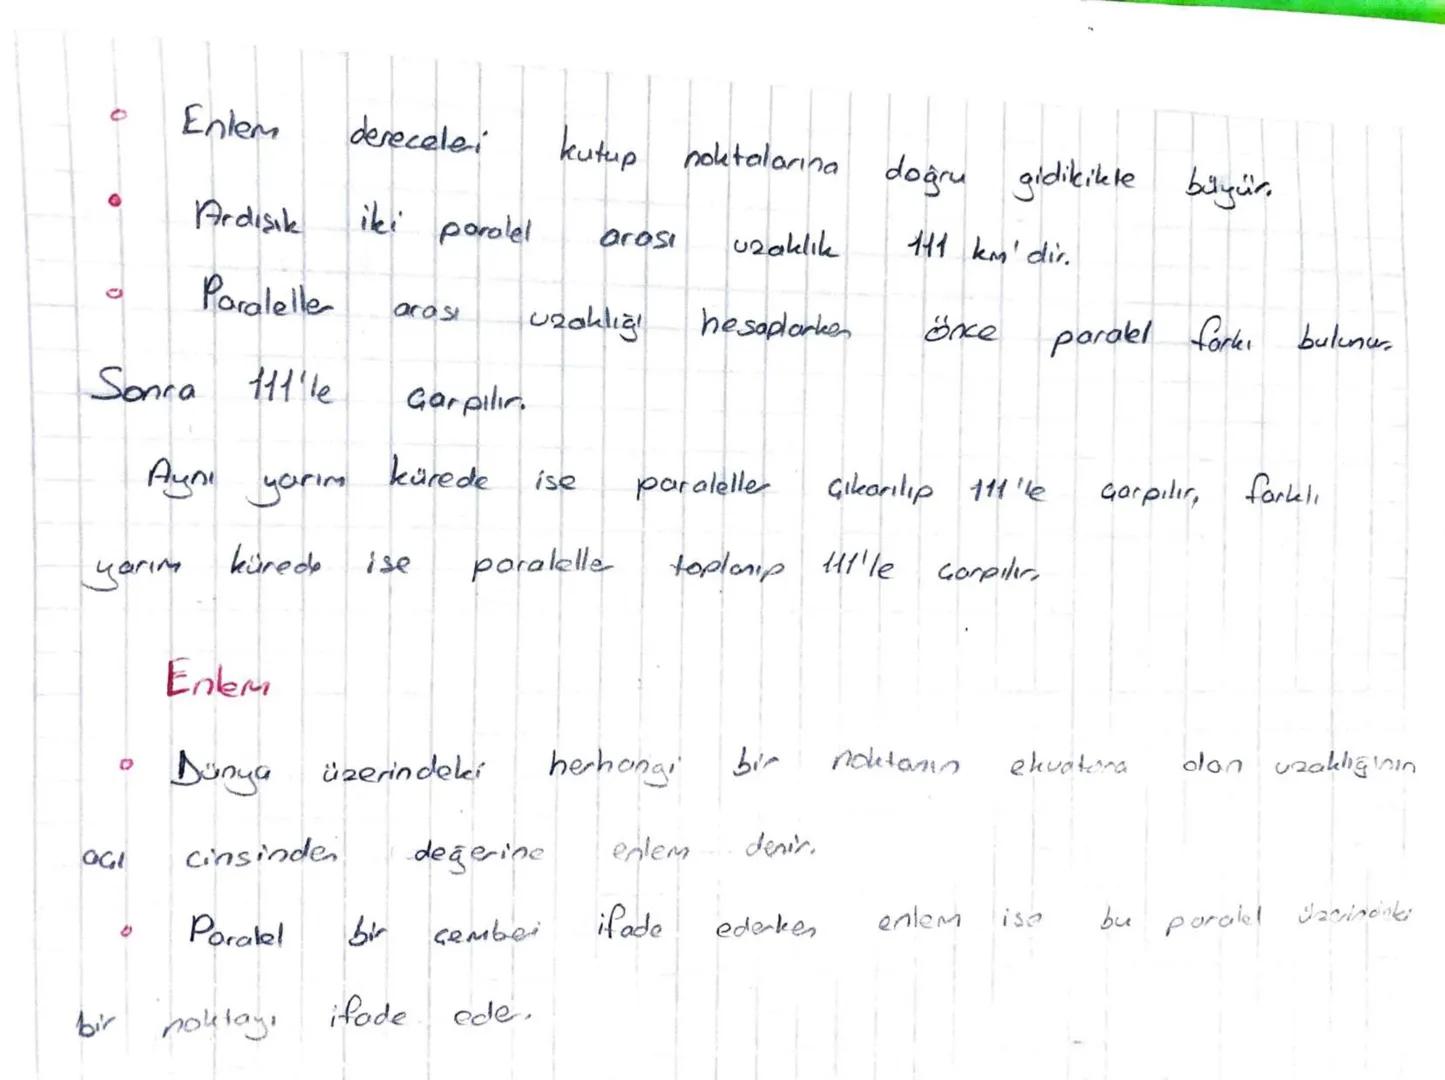 Enlem dereceleri kutup noktalarına doğru gidikikte büyür.
Ardışık iki paralel arası uzaklık 111 km'dir.
Paraleller arası uzaklığı hesaplarken önce paralel farkı bulunur.
Sonra 111'le çarpılır.
Aynı yarım kürede ise paraleller çıkarılıp 111'le çarpılır, farklı
yarım kürede ise paraleller toplanıp 111'le çarpılır.
Enlem
Dünya üzerindeki herhangi bir noktanın ekvatora olan uzaklığının
açı cinsinden değerine enlem denir.
Paralel bir çemberi ifade ederken enlem ise bu paralel üzerindeki
bir noktayı ifade eder.